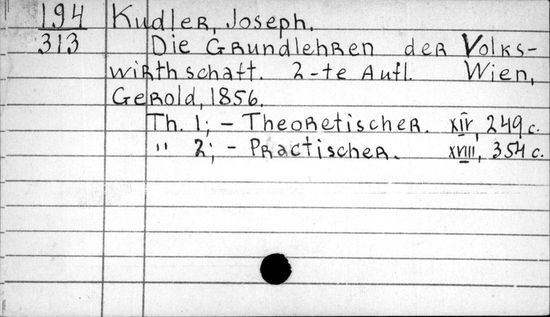 194 Kudler, Joseph.
313 Die Grundlehren der Volks-
wirthschaft. 2-te Aufl. Wien,
Gerold, 1856.
Th. 1; - Theoretischer. XIV, 249 c.
" 2; - Practischer. XVIII, 354 c.